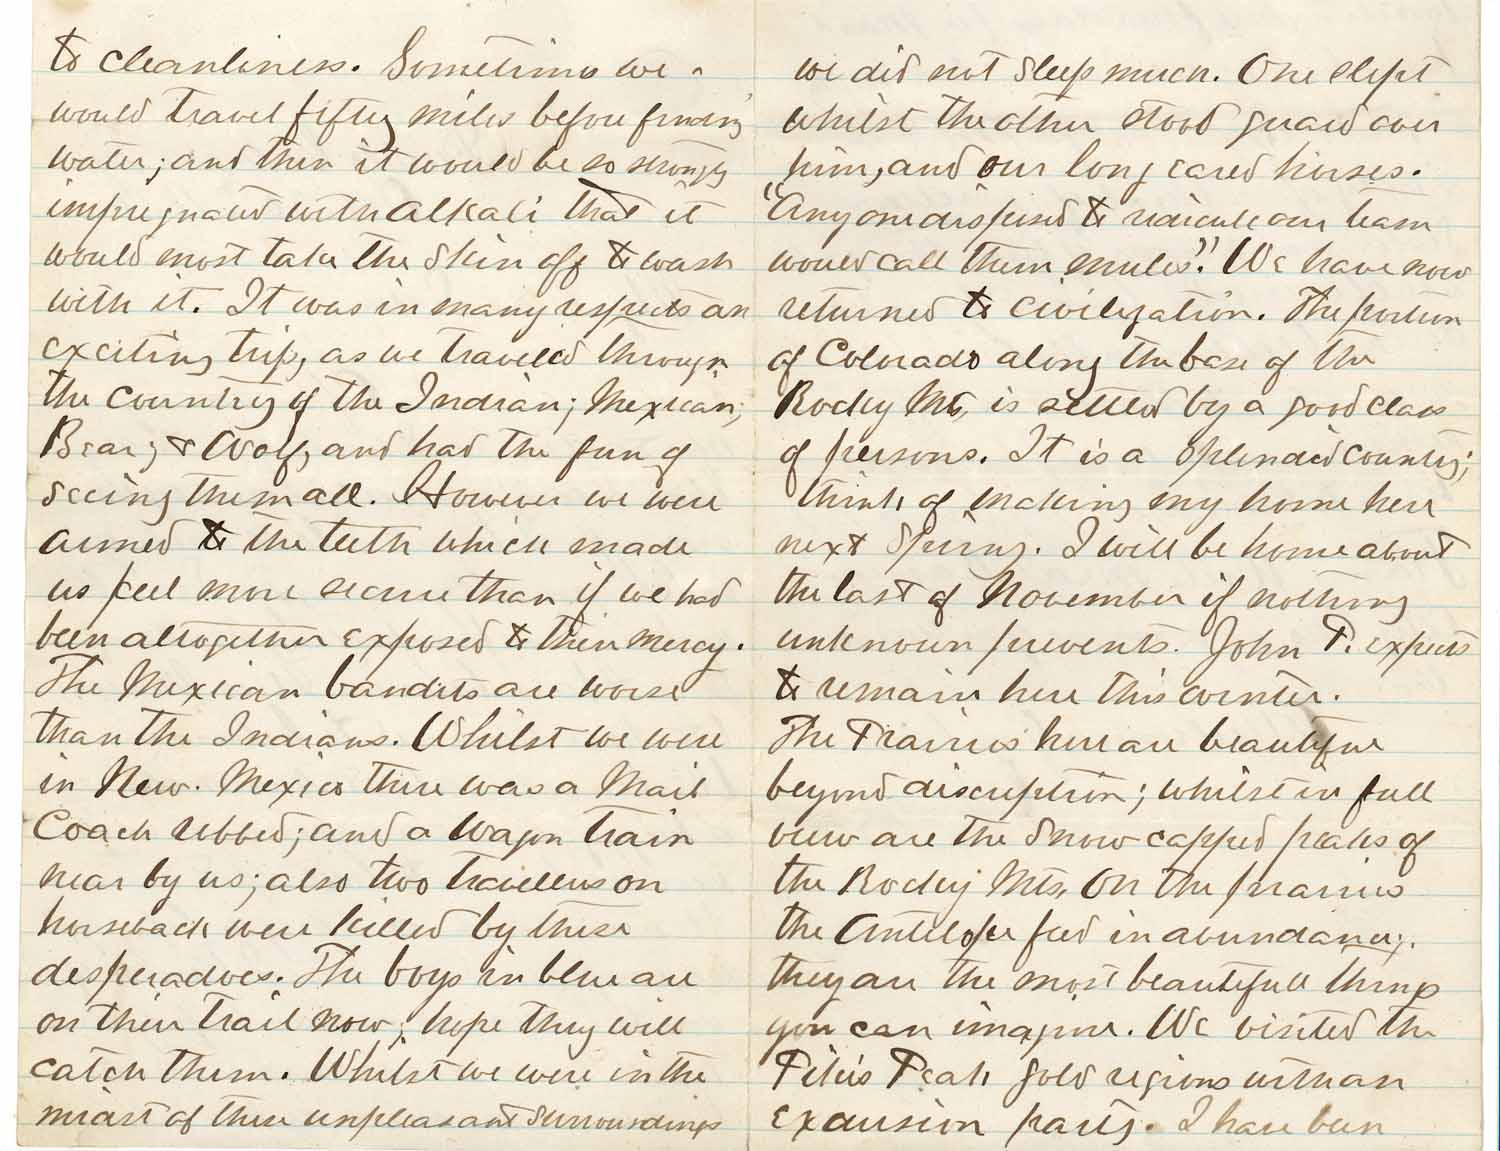 to cleanliness. Sometimes we
would travel fifty miles before finding
water; and then it would be so strongly
impregnated with Alkali that it
would most take the skin off to wash
with it. It was in many respects an
exciting trip, as we traveled through
the country of the Indian; Mexican;
Bear; & Wolf, and had the fun of
seeing them all. However we were
armed to the teeth which made
us feel more secure than if we had
been altogether exposed to their mercy.
The Mexican bandits are worse
than the Indians. Whilst we were
in New. Mexico there was a Mail
Coach robbed; and a Wagon train
near by us; also two travellers on
horseback were killed by these
desperadoes. The boys in blue are
on their trail now; hope they will
catch them. Whilst we were in the
midst of these unpleasant surroundings
we did not sleep much. One slept
whilst the other stood guard over
him, and our long eared horses.
"Any one disposed to ridicule our team
would call them mules". We have now
returned to civilization. The portion
of Colorado along the base of the
Rocky Mts, is settled by a good class
of persons. It is a splendid country;
think of making my home here
next Spring. I will be home about
the last of November if nothing
unknown prevents. John P. expects
to remain here this winter.
The Prairies here are beautiful
beyond discription; whilst in full
view are the snow capped peaks of
the Rocky Mts, On the prairies
the Antelope feed in abundance;
they are the most beautifull things
you can imagine. We visited the
Pike's Peak gold regions with an
excursion party. I have been